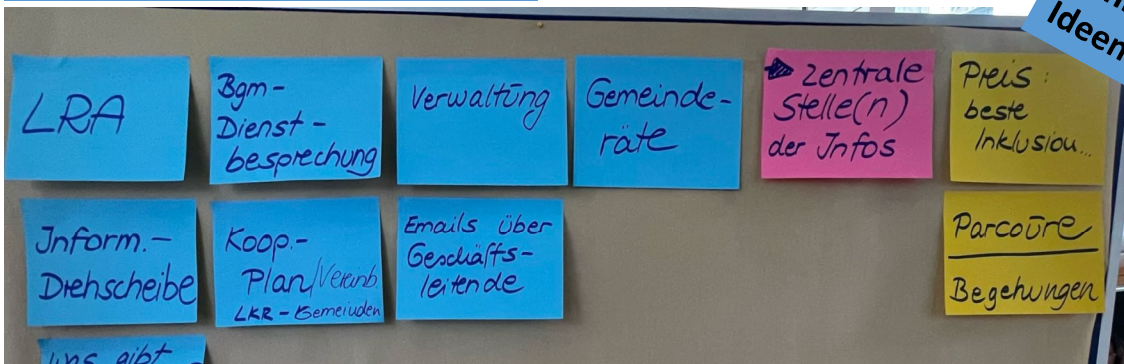 Ideen
LRA
Bgm-
Dienst-
besprechung
Verwaltung
Gemeinde-
räte
Zentrale
Stelle(n)
der Infos
Preis:
beste
Inklusion...
Inform.-
Drehscheibe
Koop.-
Plan/Vereinb
LKR-Gemeinden
Emails über
Geschäfts-
leitende
Parcoure
Begehungen
uns gibt